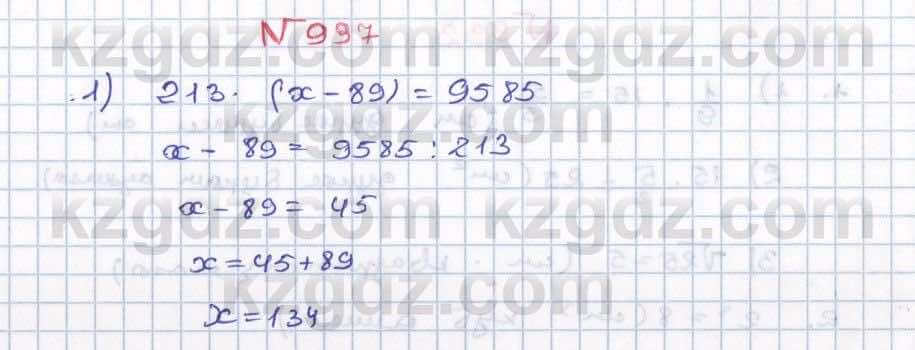 № 997
1) 213 · (x - 89) = 9585
x - 89 = 9585 : 213
x - 89 = 45
x = 45 + 89
x = 134
kzgdz.com kzgdz.com
kzgdz.com
kzgdz.com kzgdz.com
kzgdz.com